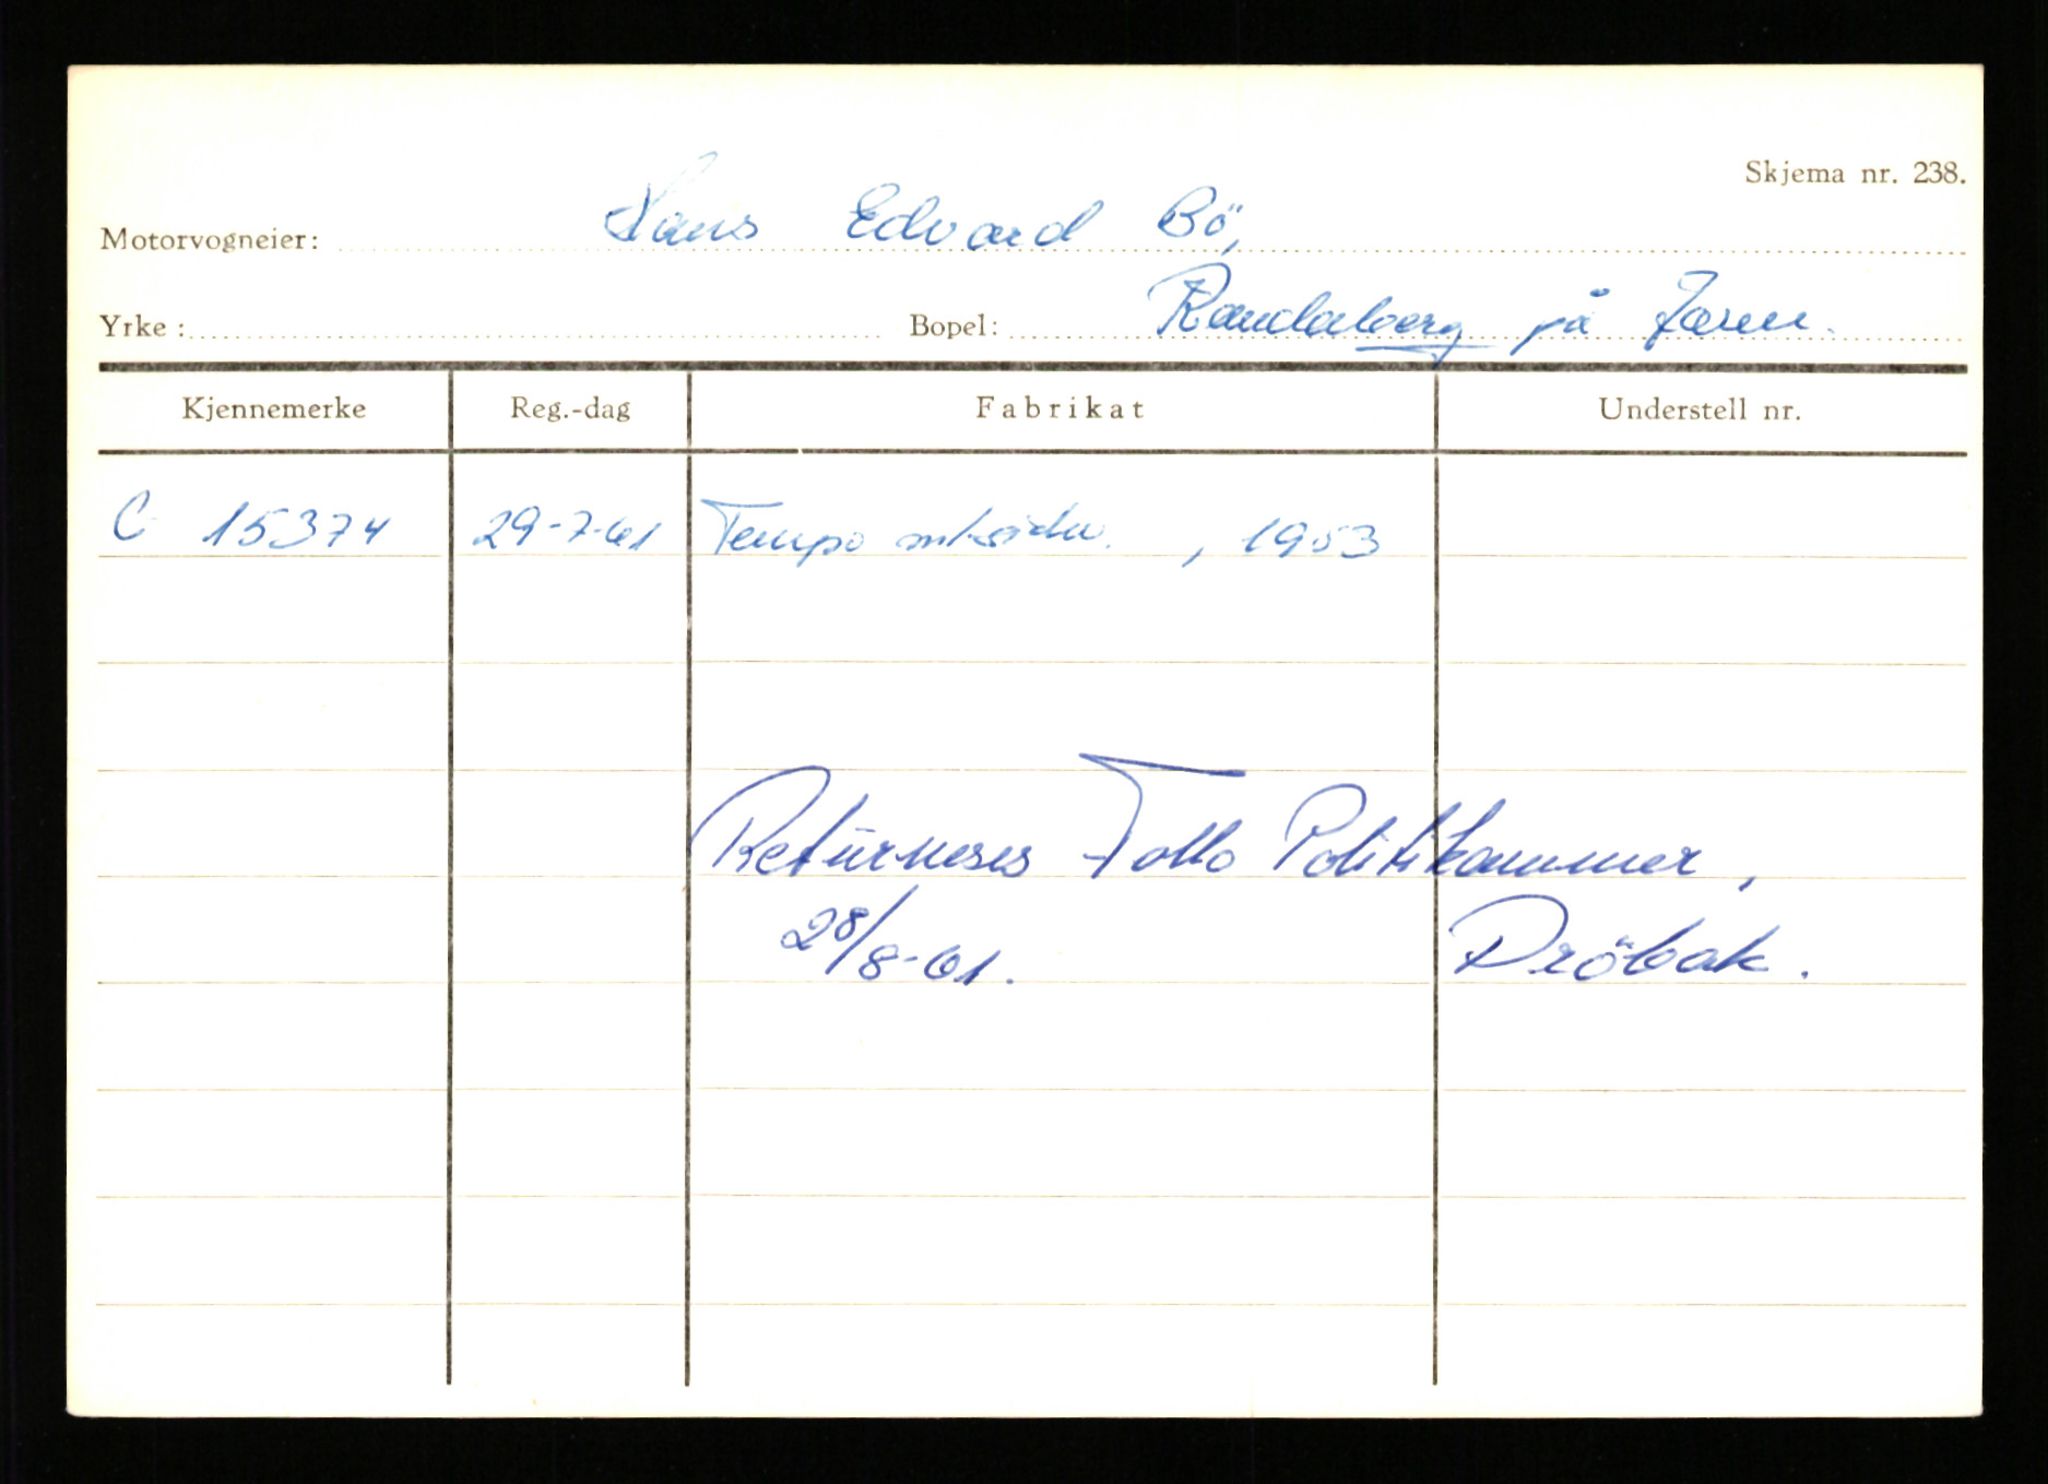 Skjema nr. 238.
Motorvogneier: Hans Edvard Bö,
Yrke: Bopel: Randaberg på Jæren.
Kjennemerke Reg.-dag Fabrikat Understell nr.
C 15374 29-7-61 Tempo , 1953
Retürneres Follo Politikammer,
28/8-61. Dröbak.